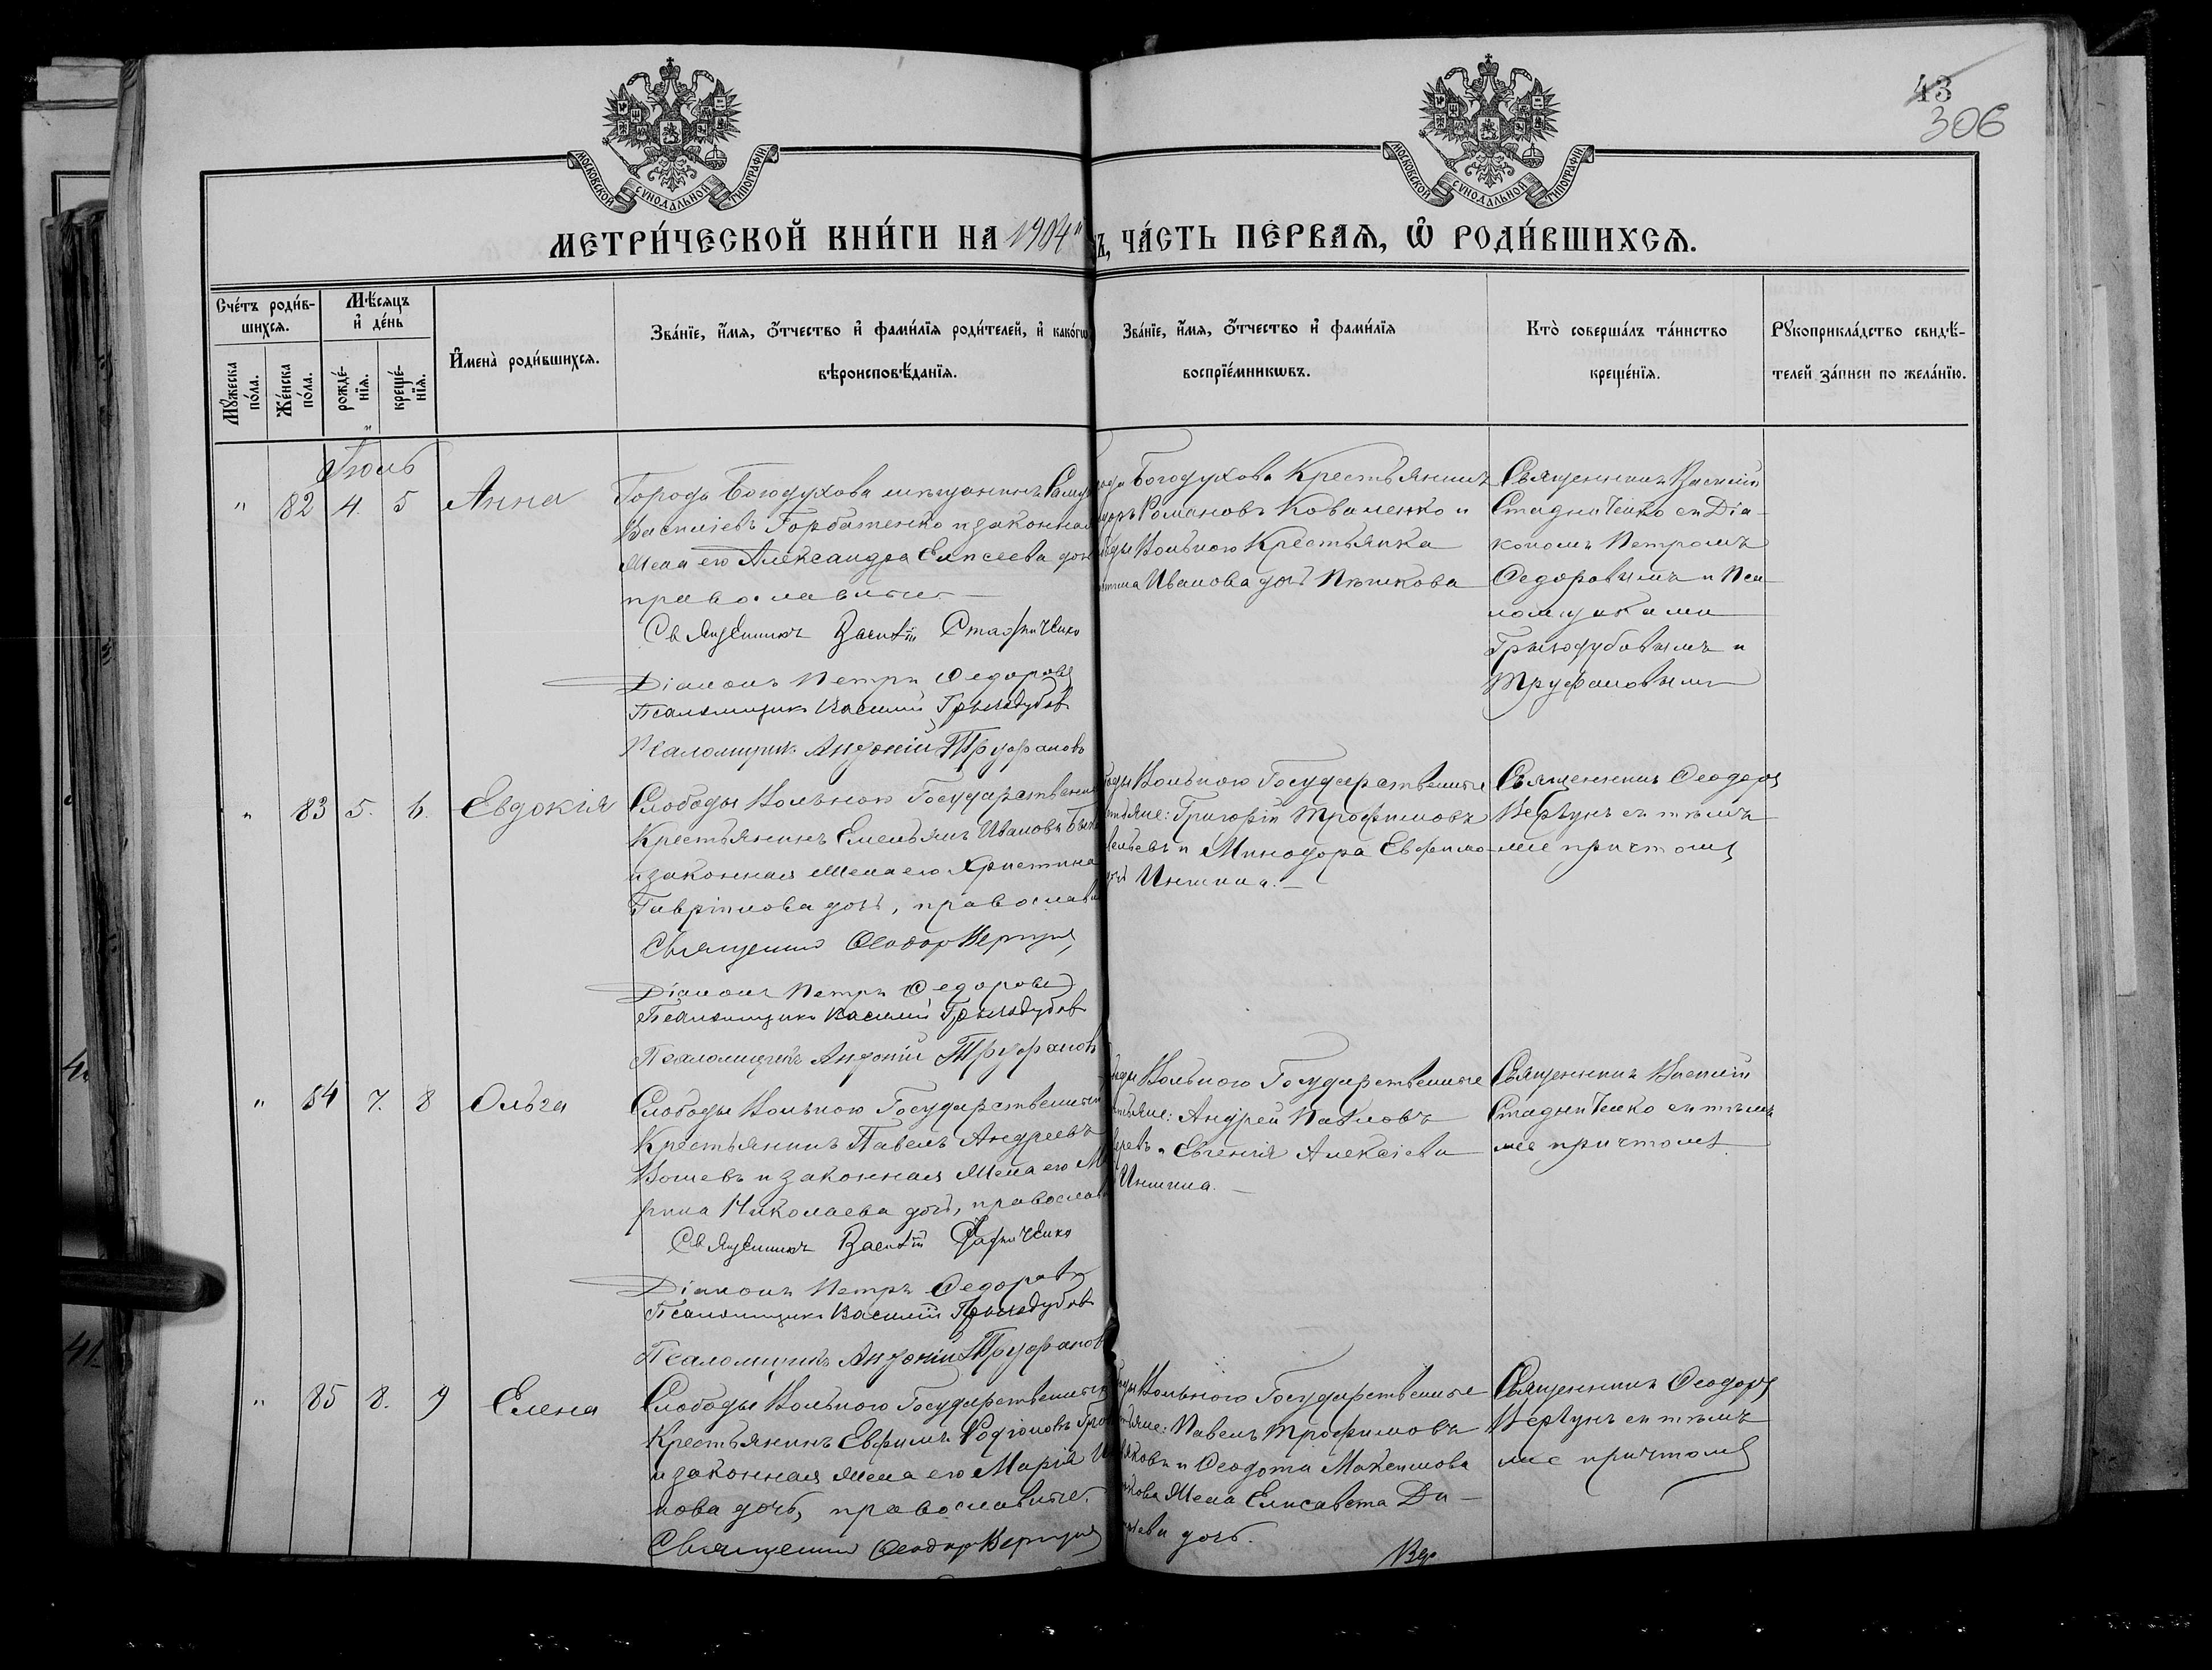 43
306
МОСКОВСКОЙ СѴНОДАЛЬНОЙ ТИПОГРАФІИ
МОСКОВСКОЙ СѴНОДАЛЬНОЙ ТИПОГРАФІИ
МЕТРИ́ЧЕСКОЙ КНИ́ГИ НА 1904"
Ъ, ЧА́СТЬ ПЕ́РВАѦ, Ѽ РОДИ́ВШИХСѦ.
Сче́тъ роди́в-
шихсѧ.
Мꙋ́жеска по́ла.
Же́нска по́ла.
Мѣ́сѧцъ
и҆ де́нь
рожде́-
нїѧ.
креще́-
нїѧ.
И҆мена̀ роди́вшихсѧ.
Зва́нїе, и҆́мѧ, ѻ҆́тчество и҆ фами́лїѧ роди́телей, и҆ како́гѡ
вѣроисповѣ́данїѧ.
Зва́нїе, и҆́мѧ, ѻ҆́тчество и҆ фами́лїѧ
воспрїе́мникѡвъ.
Кто̀ соверша́лъ та́инство
креще́нїѧ.
Рꙋкоприкла́дство свидѣ́-
телей за́писи по жела́нїю.
Іюль
" 82 4. 5 Анна
Города Богодухова мѣщанинъ
Василіевъ Горбатенко и законная
жена его Александра Елисеева
православные
Священникъ Василій Стадниченко
Діаконъ Петръ Федоровъ
Псаломщикъ Василій
Псаломщикъ Антоній Труфановъ
Богодухова Крестьянинъ
Романовъ Коваленко и
Вольной Крестьянка
Иванова дочь
Священникъ Василій
Стадниченко съ Діа-
кономъ Петромъ
Федоровымъ и Пса-
ломщиками
и
Труфановымъ
" 83 5. 6. Евдокія
Слободы Вольной Государственный
Крестьянинъ Емельянъ Ивановъ
и законная жена его Христина
Гавріилова дочь, православн
Священникъ Ѳеодоръ
Діаконъ Петръ Федоровъ
Псаломщикъ Василій
Псаломщикъ Антоній Труфановъ
Вольной Государственные
Григорій Трофимовъ
и Минодора Евфимо-
Иншина.
Священникъ Ѳеодоръ
съ тѣмъ
же причтомъ
" 84 7. 8 Ольга
Слободы Вольной Государственный
Крестьянинъ Павелъ Андреевъ
и законная жена его
рина Николаева дочь, православ
Священникъ Василій Стадниченко
Діаконъ Петръ Федоровъ
Псаломщикъ Василій
Псаломщикъ Антоній Труфановъ
Вольной Государственные
Андрей Павловъ
и Евгенія Алексіева
Иншина.
Священникъ Василій
Стадниченко съ тѣмъ
же причтомъ
" 85 8. 9 Елена
Слободы Вольной Государственный
Крестьянинъ Евфимъ Родіоновъ
и законная жена его Марія
нова дочь, православные.
Священникъ Ѳеодоръ
Вольной Государственные
Павелъ Трофимовъ
и Ѳеодота Максимова
жена Елисавета
дочь.
Священникъ Ѳеодоръ
съ тѣмъ
же причтомъ